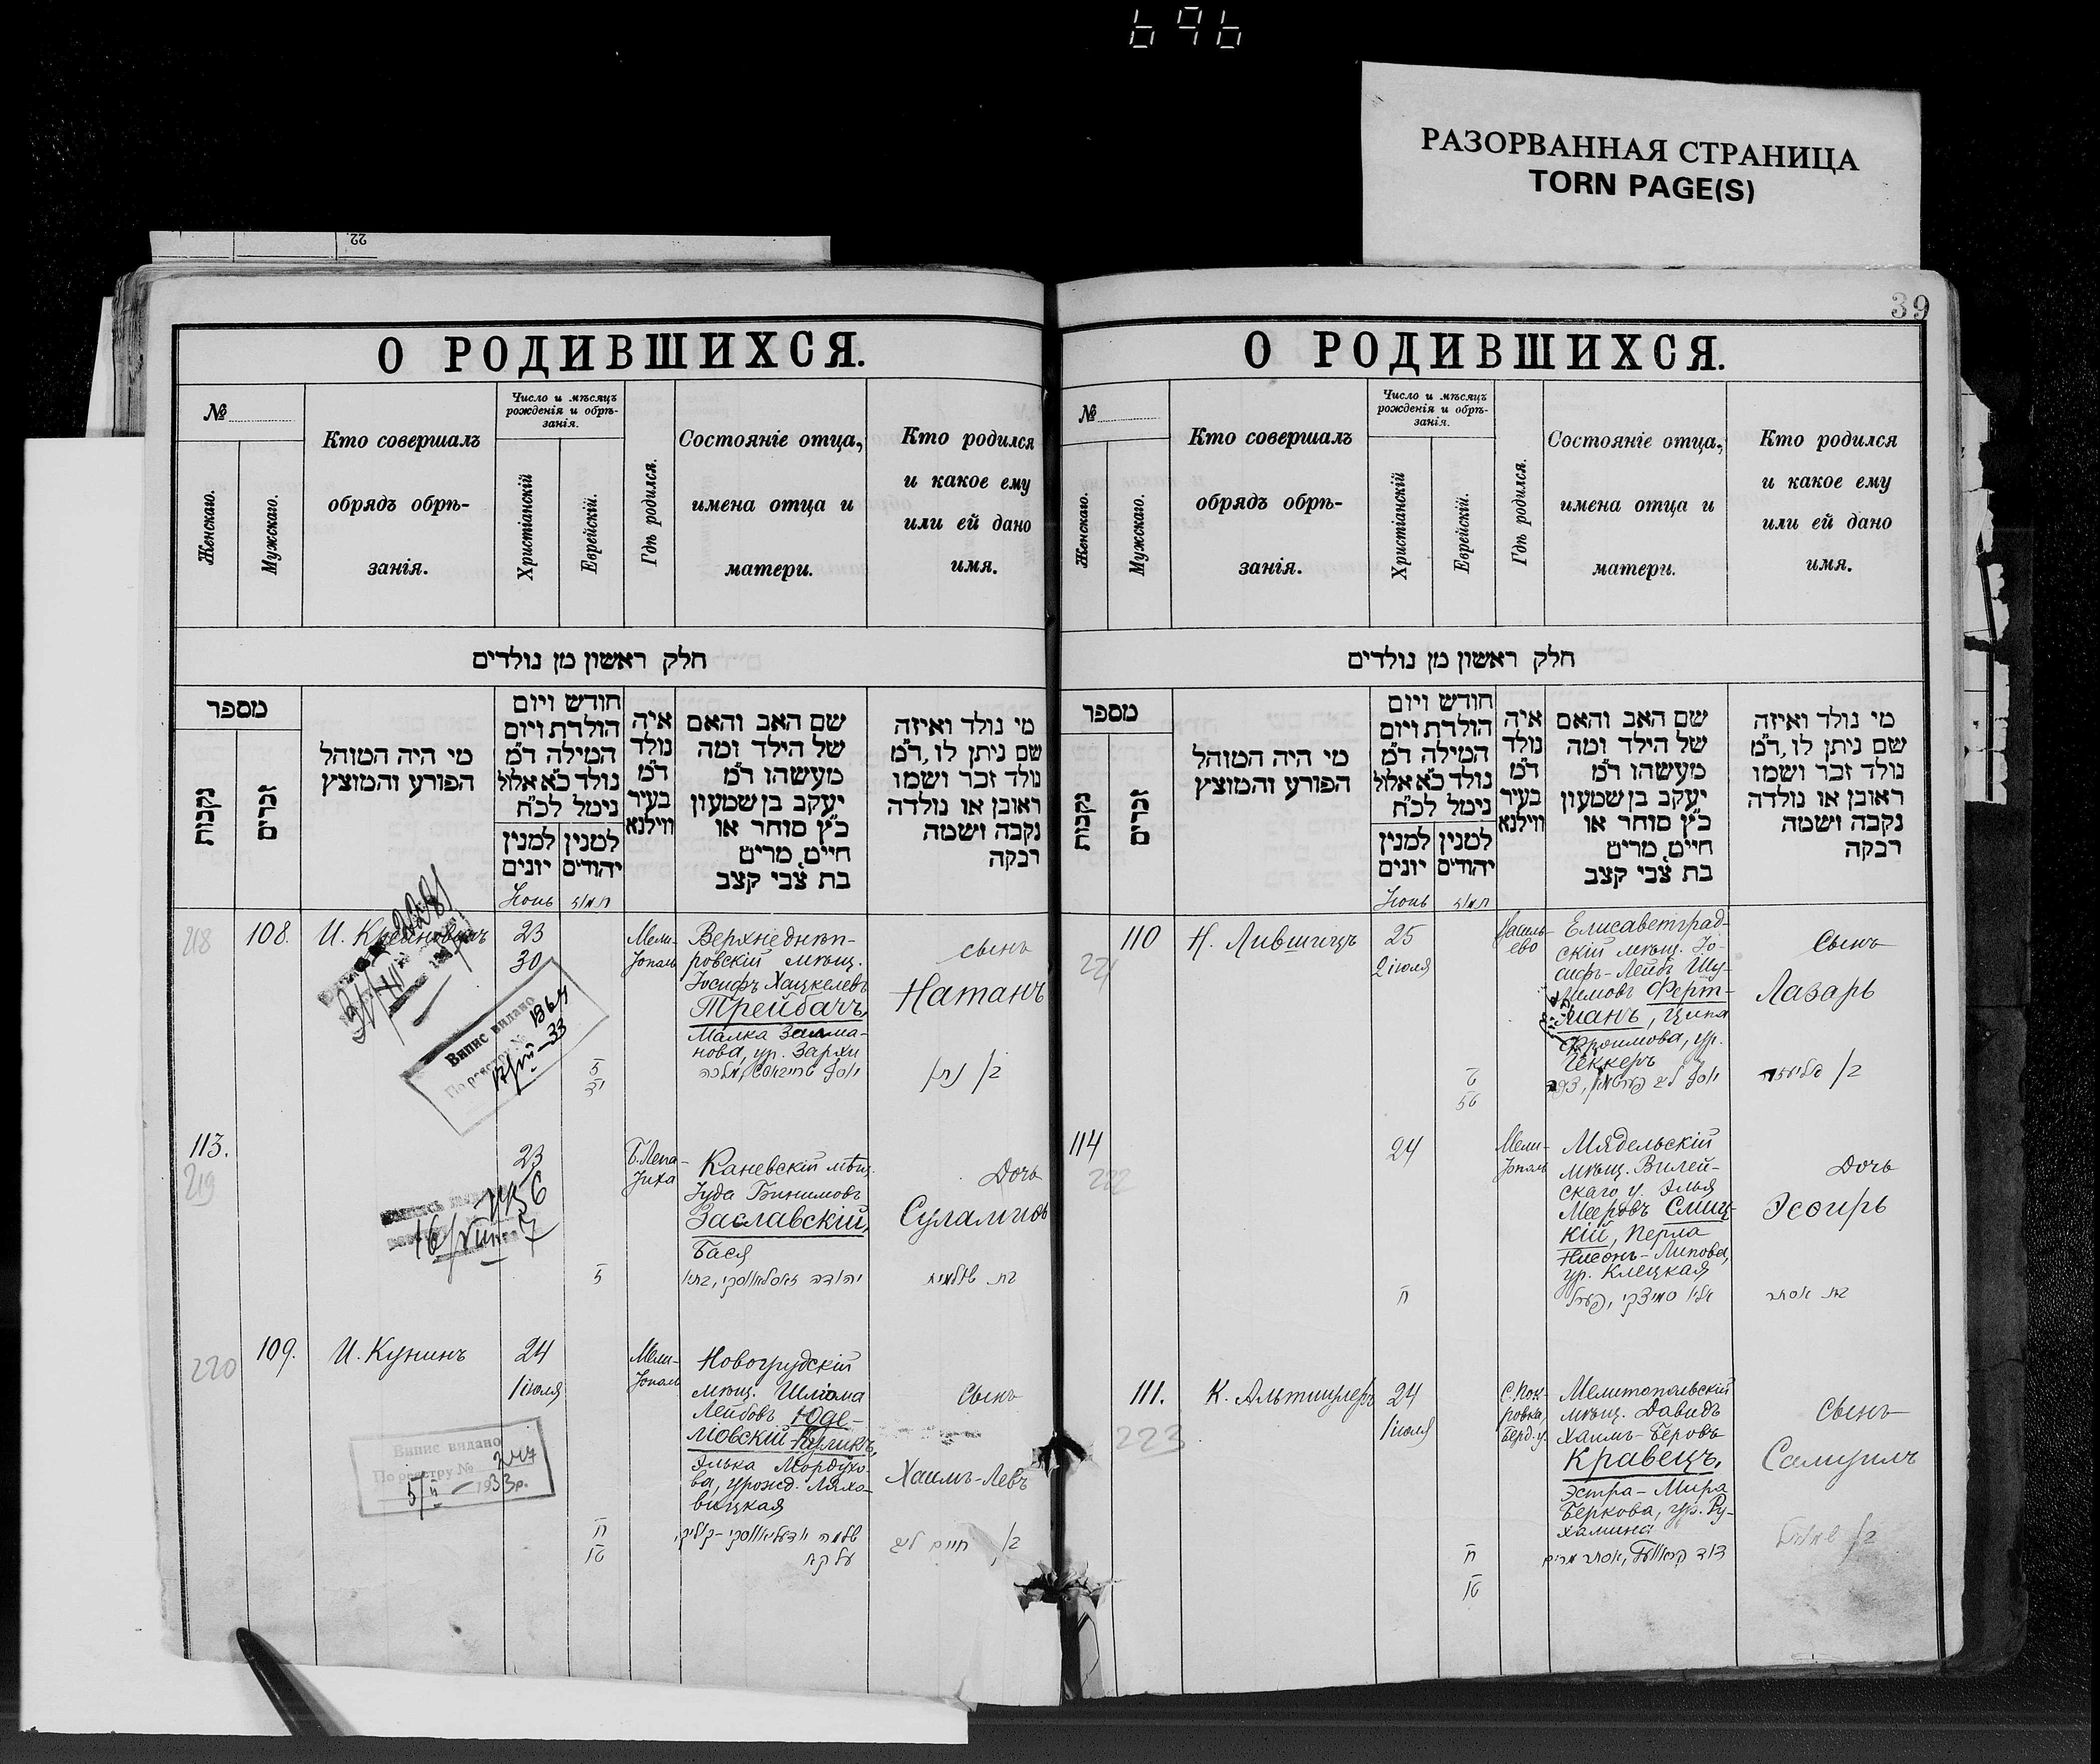 696
РАЗОРВАННАЯ СТРАНИЦА
TORN PAGE(S)
22
О РОДИВШИХСЯ.
№
Женскаго.
Мужскаго.
Кто совершалъ
обрядъ обрѣ-
занія.
Число и мѣсяцъ
рожденія и обрѣ-
занія.
Христіанскій
Еврейскій.
Гдѣ родился.
Состояніе отца,
имена отца и
матери.
Кто родился
и какое ему
или ей дано
имя.
חלק ראשון מן נולדים
מספר
נקבות
זכרים
מי היה המוהל
הפורע והמוצץ
חודש ויום
הולדת ויום
המילה ד״מ
נולד כ״א אלול
נימל לכ״ח
למנין
יונים
למנין
יהודים
איה
נולד
ד״מ
בעיר
ווילנא
שם האב והאם
של הילד ומה
מעשהו ד״מ
יעקב בן שמעון
כ״ץ סוחר או
חיים, מרים
בת צבי קצב
מי נולד ואיזה
שם ניתן לו, ד״מ
נולד זכר ושמו
ראובן או נולדה
נקבה ושמה
רבקה
Іюнь
תמוז
218
108.
И. Крейновичъ
23
30
Мели-
тополь
Верхнеднѣп-
ровскій мѣщ.
Іосифъ Хацкелевъ
Трейбачъ,
Малка Залма-
нова, ур. Зархи
сынъ
Натанъ
בן נתן
Випис видано
По реєстру № 1864
113.
219
23
Б. Лепа-
тиха
Каневскій мѣщ.
Іуда Бинимовъ
Заславскій,
Бася
Дочь
Суламифь
בת שולמית
16/VIII
220
109.
И. Кунинъ
24
1 іюля
Мели-
тополь
Новогрудскій
мѣщ. Шліома
Лейбовъ Юде-
мовскій-
Элька Мордухо-
ва, урожд. Ляхо-
вицкая
Сынъ
Хаимъ-Левъ
Випис видано
По реєстру № 2447
5/II – 1933р.
39
О РОДИВШИХСЯ.
№
Женскаго.
Мужскаго.
Кто совершалъ
обрядъ обрѣ-
занія.
Число и мѣсяцъ
рожденія и обрѣ-
занія.
Христіанскій
Еврейскій.
Гдѣ родился.
Состояніе отца,
имена отца и
матери.
Кто родился
и какое ему
или ей дано
имя.
חלק ראשון מן נולדים
מספר
נקבות
זכרים
מי היה המוהל
הפורע והמוצץ
חודש ויום
הולדת ויום
המילה ד״מ
נולד כ״א אלול
נימל לכ״ח
למנין
יונים
למנין
יהודים
איה
נולד
ד״מ
בעיר
ווילנא
שם האב והאם
של הילד ומה
מעשהו ד״מ
יעקב בן שמעון
כ״ץ סוחר או
חיים, מרים
בת צבי קצב
מי נולד ואיזה
שם ניתן לו, ד״מ
נולד זכר ושמו
ראובן או נולדה
נקבה ושמה
רבקה
Іюнь
תמוז
221
110
Н. Лившицъ
25
2 іюля
Василь-
ево
Елисаветград-
скій мѣщ. Іо-
сифъ-Лейбъ
Ферт-
манъ, Ципа
Фроимова, ур.
Геккеръ
Сынъ
Лазарь
114
222
24
Мели-
тополь
Мядельскій
мѣщ. Вилей-
скаго у. Элья
Мееровъ Слиц-
кій, Перла
Нисонъ-Липова,
ур. Клецкая
Дочь
Эсѳирь
בת אסתר
111.
223
К. Альтшулеръ
24
1 іюля
С. Пок-
ровка,
Берд. у.
Мелитопольскій
мѣщ. Давидъ
Хаимъ-Беровъ
Кравецъ,
Эстра-Мира
Беркова, ур. Ру-
хамина
Сынъ
Самуилъ
דוד קראוועץ, אסתר מרים